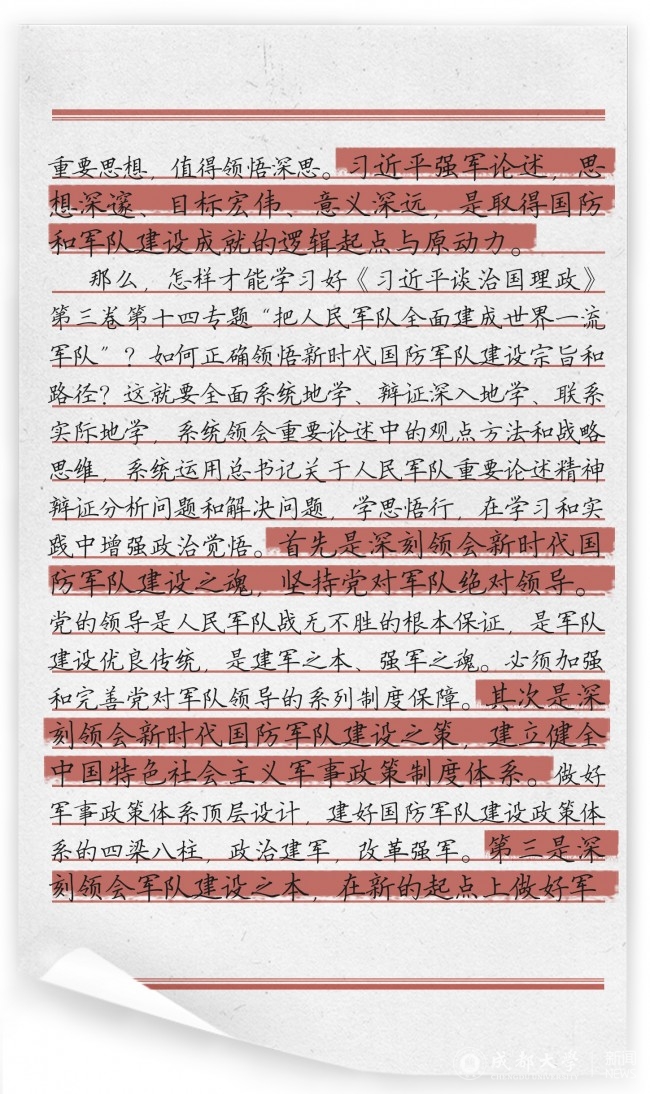 重要思想，值得领悟深思。习近平强军论述，思
想深邃、目标宏伟、意义深远，是取得国防
和军队建设成就的逻辑起点与原动力。
那么，怎样才能学习好《习近平谈治国理政》
第三卷第十四专题“把人民军队全面建成世界一流
军队”？如何正确领悟新时代国防军队建设宗旨和
路径？这就要全面系统地学、辩证深入地学、联系
实际地学，系统领会重要论述中的观点方法和战略
思维，系统运用总书记关于人民军队重要论述精神
辩证分析问题和解决问题，学思悟行，在学习和实
践中增强政治觉悟。首先是深刻领会新时代国
防军队建设之魂，坚持党对军队绝对领导。
党的领导是人民军队战无不胜的根本保证，是军队
建设优良传统，是建军之本、强军之魂。必须加强
和完善党对军队领导的系列制度保障。其次是深
刻领会新时代国防军队建设之策，建立健全
中国特色社会主义军事政策制度体系。做好
军事政策体系顶层设计，建好国防军队建设政策体
系的四梁八柱，政治建军，改革强军。第三是深
刻领会军队建设之本，在新的起点上做好军
成都大学 新闻
CHENGDU UNIVERSITY NEWS